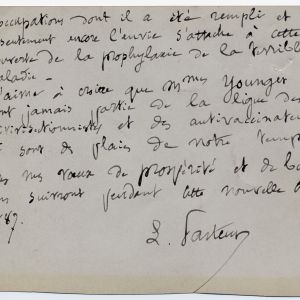 occupations dont il a été rempli et
sentiment encore l'envie s'attache à cette
de la prophylaxie de la terrible
aladie –
j'aime à croire que Mmes Younger
ont jamais partie de la clique des
ivisectionnistes et des antivaccinateu
sont des plaies de notre temps
es mes vœux de prospérité et de
us suivront pendant cette nouvelle
87.
L. Pasteur